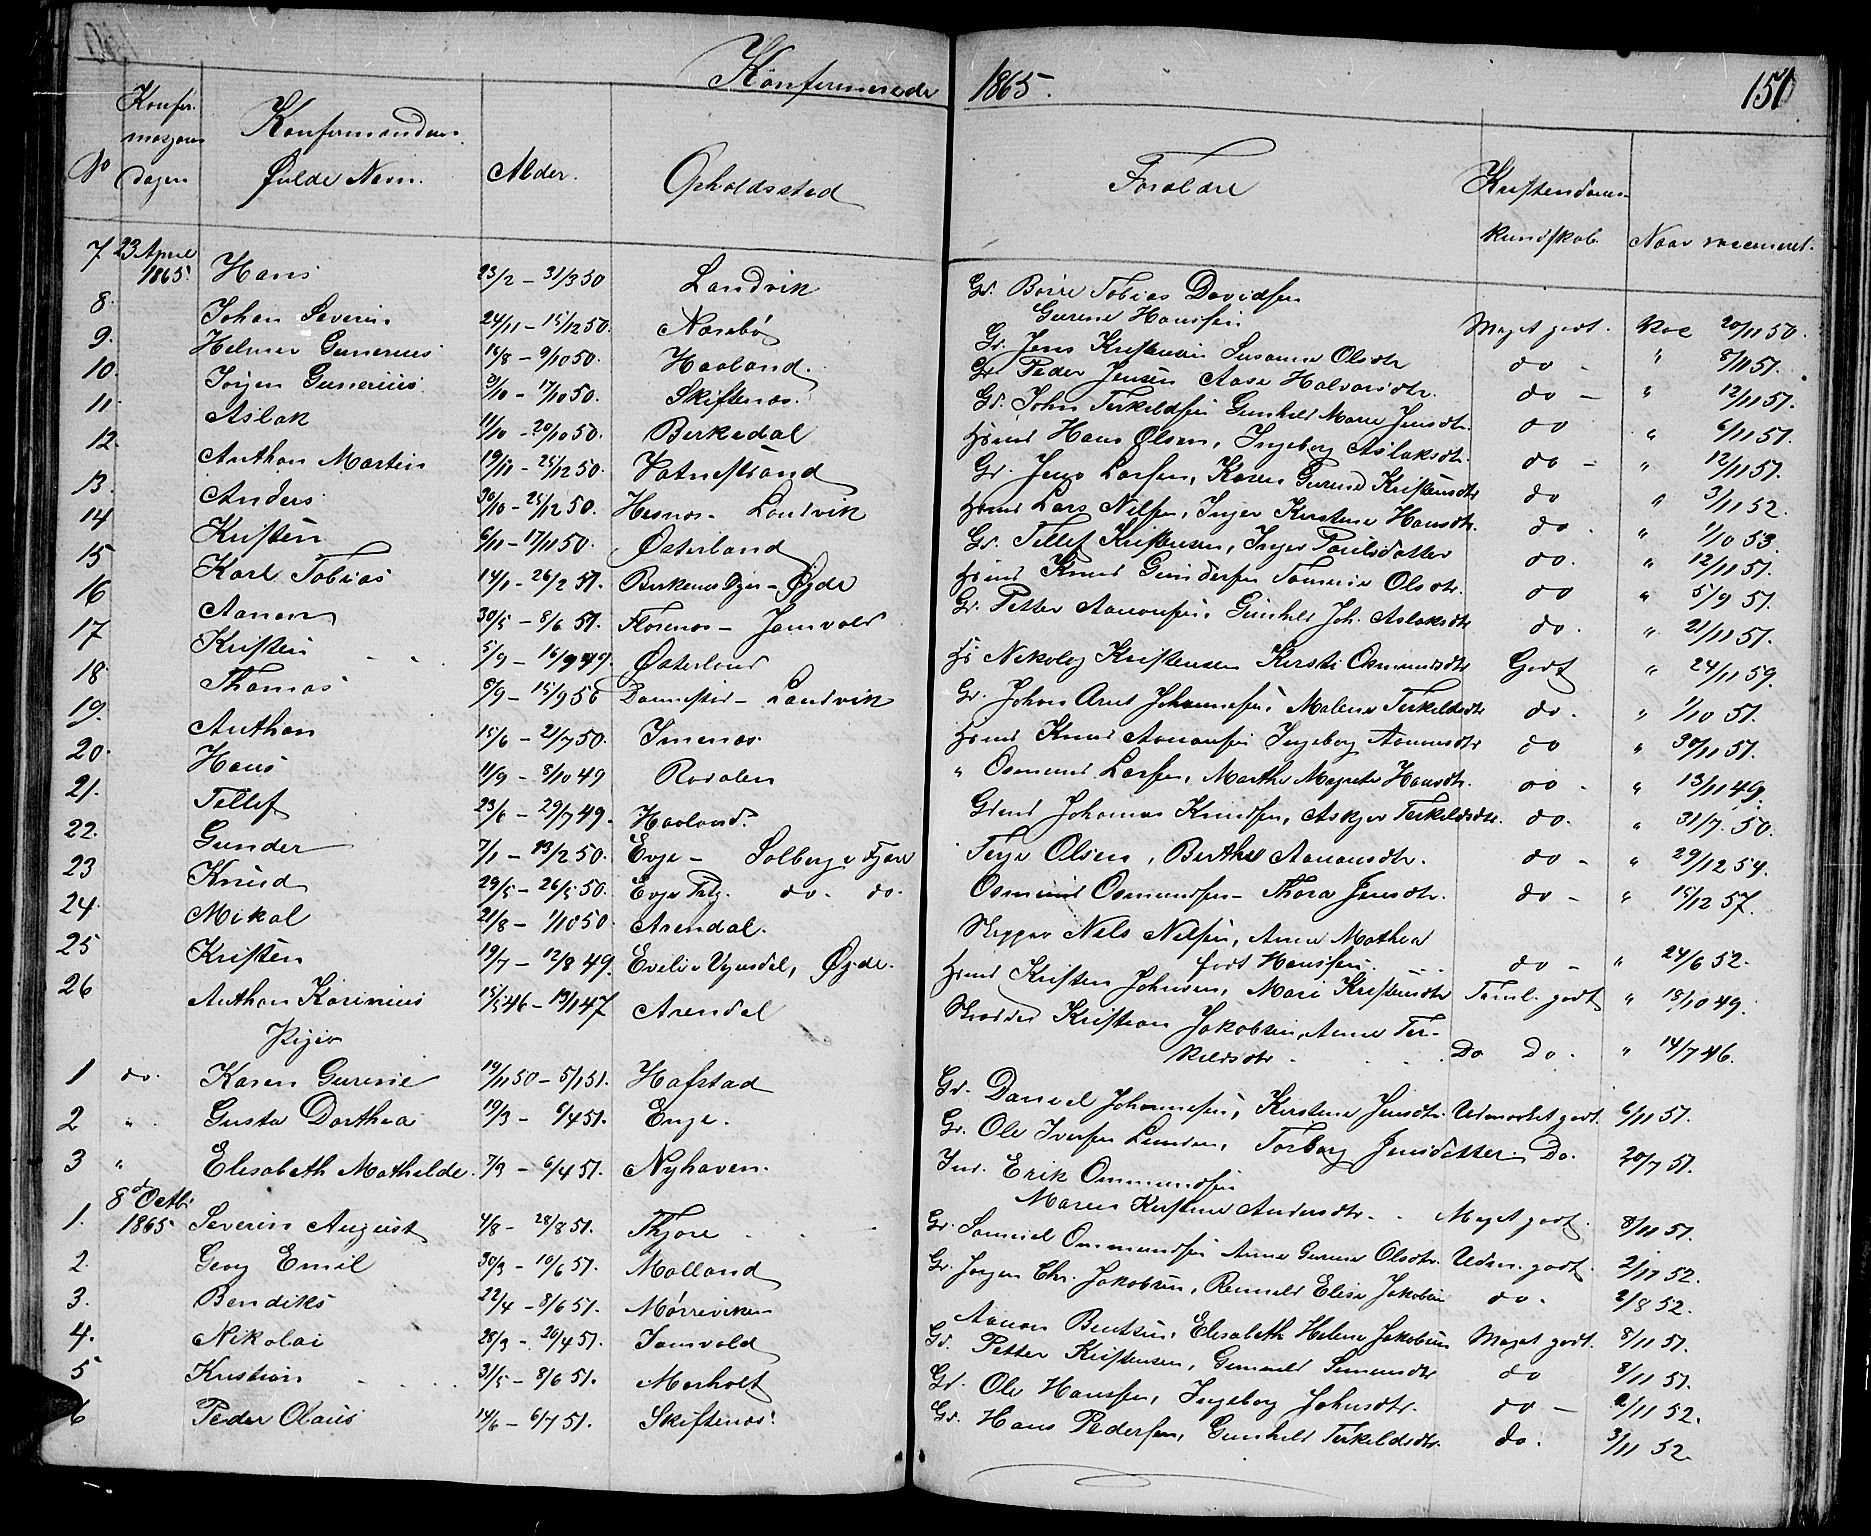 Konfirmerede 1865. 151
No
Konfir-
mazjons
dagen
Konfirmandens
Fulde Navn.
Alder.
Opholdsstad
Foreldre
Kristendoms-
kundskab.
Naar vaccineret.
7 23 April 1865. Hans 23/2 - 31/3 50 Landvik Gd. Börre Tobias Davidsen
Gurine Hanssen Meget godt. Vac 20/11 50.
8. Johan Severin 24/11 - 15/12 50. Næsebö Gd. Jens Kristensen Susanne Olsdtr do - " 8/11 51.
9. Helmer Gunerius 16/8 - 9/10 50. Haaland. Gd Peder Jensen Aase Halvorsdtr. do - " 12/11 51.
10. Jörgen Gunerius 3/10 - 17/10 50. Skiftenæs. Gd. John Terkeldsen Gunhild Marie Jensdtr. do " 6/11 51.
11. Aslak 11/10 - 20/10 50. Birkedal Hsmd Hans Olsen, Ingeborg Aslaksdtr. do - " 12/11 51.
12. Anthon Martin 19/11 - 25/12 50. Vatnestrand Gd. Jens Larsen, Karen Gurine Kristensdtr do " 3/11 52.
13. Anders 30/10 - 25/12 50. Hesnes - Landvik Hsmd Lars Nilsen, Inger Kirstine Hansdtr. do. " 1/10 53.
14 Kristen 6/11 - 17/11 50. Østerland Gd. Tellef Kristensen, Inger Poulsdatter do. " 12/11 51.
15 Karl Tobias 14/1 - 26/2 51. Birkenes - Øyde Hsmd Knud Gundersen Tomine Olsdtr. do " 5/9 51.
16 Aanon 30/5 - 8/6 51. Florenæs - Jomvold Gd. Petter Aanonsen Gunhild Joh. Aslaksdtr do. " 21/11 51.
17 Kristen 5/9 - 16/9 49. Østerland Hs Nikolay Kristensen Kirsti Osmundsdtr Godt " 24/11 59.
18. Thomas 8/9 - 15/9 50 Dannestad - Landvik Gd. Johan Arnt Johannesen Malene Terkildsdtr do. " 1/10 51.
19. Anthon 15/6 - 21/7 50. Imenæs. Hsmd Knud Aanonsen Ingeborg Aanonsdtr do " 30/11 51.
20. Hans 11/9 - 8/10 49 Rosalen " Osmund Larsen, Marthe Magrete Hansdtr. do - " 13/11 49.
21. Tellef 23/6 - 29/7 49. Haaland. Gdmd Johannes Knudsen, Askjer Terkildsdtr. do. " 31/7 50.
22. Gunder 7/1 - 13/2 50. Evje - Solberg i Fjære Terje Olsen, Berthe Aanonsdtr. do - " 29/12 54.
23 Knud 29/5 - 26/5 50. Evje Prtg. do. do. Osmund Osmundsen - Thora Jensdtr. do - " 15/12 57.
24. Mikal 21/8 - 1/10 50. Arendal. Skipper Nils Nilsen, Anne Mathea
født Hanssen. do - " 24/6 52.
25 Kristen 19/7 - 12/8 49. Øyde. Hsmd Kristen Johnsen, Mari Kristensdtr Teml. godt " 18/10 49.
26 Anthon Karinius 15/5 46 - 13/1 47 Arendal Skrædder Kristian Jakobsen, Anne Ter-
kildsdtr Do Do. " 14/7 46.
Piger
1 do. Karen Gurine 19/11 50 - 5/1 51. Hafstad Gd. Daniel Johannesen, Kirstine Jensdtr. Udmærket godt. 6/11 51.
2 " Gusta Dorthea 19/3 - 6/4 51. Enge. Gd. Ole Iversen Lunden, Torborg Jensdatter. Do. 20/7 51.
3 " Elisabeth Mathilde. 7/3 - 6/4 51. Nyhaven. Ind. Erik Ommundsen
Maren Kirstine Andersdtr. Meget godt. 8/11 51.
1. 8d Octbr 1865 Severin August 4/8 - 28/8 51. Fjære Gd. Samuel Ommundsen Anne Gurine Olsdtr. Udm. godt. 2/11 52.
2. Georg Emil 30/3 - 10/6 51. Molland Gd. Jørgen Chr. Jakobsen, Remseld Elise Jakobsen do. 2/8 52.
3. Bendiks 22/4 - 8/6 51. Mørreviken Aanon Bentsen, Elisabeth Helene Jakobsen Meget godt. 8/11 51.
4. Nikolai 28/3 - 26/4 51. Jomvold Gd. Petter Kristensen, Gunnild Simonsdtr do 8/11 51.
5 Kristian 31/5 - 8/6 51. Morholt Gd. Ole Hanssen, Ingeborg Johnsdtr. do - 2/11 52.
6 Peder Olaus 14/6 - 6/7 51. Skiftenæs. Gd. Hans Pedersen, Gunhild Terkildsdtr. do. 3/11 52.